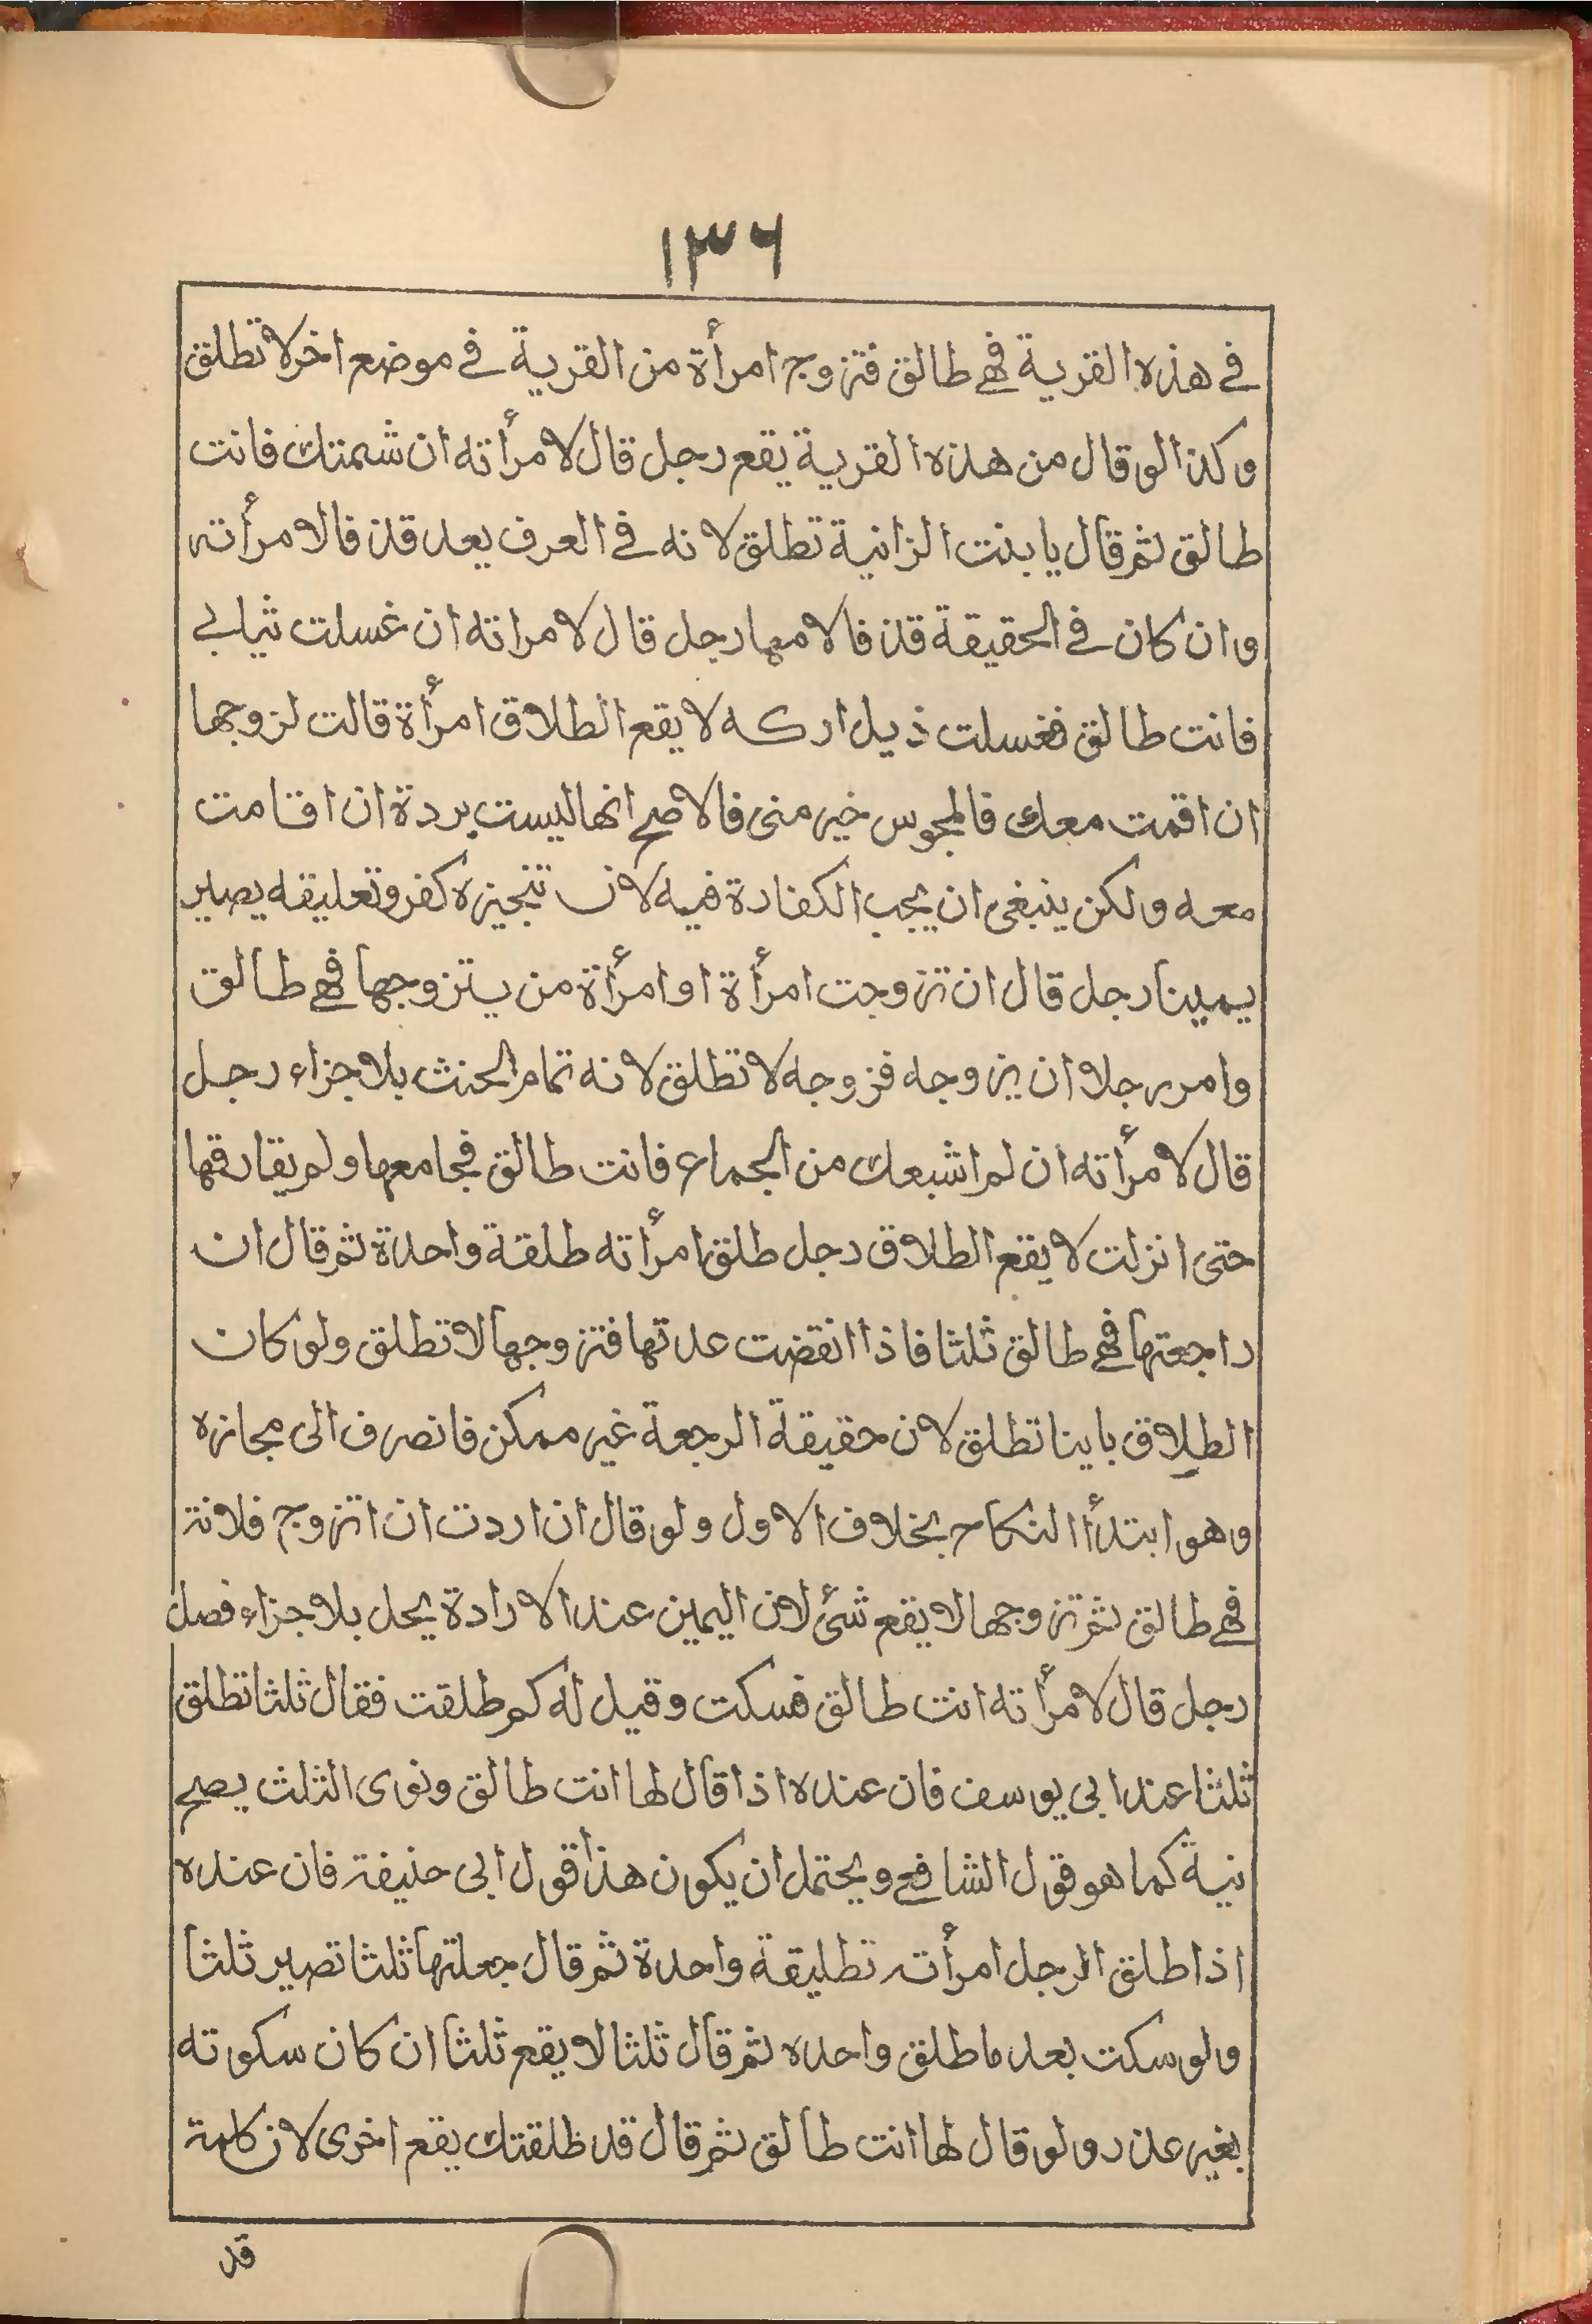 ١٣٦
في هذه القرية فهي طالق فتزوج امرأة من القرية في موضع اخر لا تطلق
وكذا لو قال من هذه القرية يقع رجل قال لامرأته ان شمتتك فانت
طالق ثم قال يا بنت الزانية تطلق لانه في العرف يعد قذفا لامرأته
وان كان في الحقيقة قذفا لامها رجل قال لامراته ان غسلت ثيابي
فانت طالق فغسلت ذيل اركه لا يقع الطلاق امرأة قالت لزوجها
ان اقمت معك فالمجوس خير منى فالاصح انها ليست بردة ان اقامت
معه ولكن ينبغى ان يجب الكفارة فيه لان تنجيزه كفر وتعليقه يصير
يمينا رجل قال ان تزوجت امرأة او امرأة من يتزوجها فهي طالق
وامر رجلا ان يزوجه فزوجه لا تطلق لانه تمام الحنث بلا جزاء رجل
قال لامرأته ان لم اشبعك من الجماع فانت طالق فجامعها ولم يفارقها
حتى انزلت لا يقع الطلاق رجل طلق امرأته طلقة واحدة ثم قال ان
راجعتها فهي طالق ثلثا فاذا انقضت عدتها فتزوجها لا تطلق ولو كان
الطلاق باينا تطلق لان حقيقة الرجعة غير ممكن فانصرف الى مجازه
وهو ابتدأ النكاح بخلاف الاول ولو قال ان اردت ان اتزوج فلانة
فهي طالق ثم تزوجها لا يقع شئ لان اليمين عند الارادة يحل بلا جزاء فصل
رجل قال لامرأته انت طالق فسكت وقيل له كم طلقت فقال ثلثا تطلق
ثلثا عند ابى يوسف فان عنده اذا قال لها انت طالق ونوى الثلث يصح
نية كما هو قول الشافعي ويحتمل ان يكون هذا قول ابى حنيفة فان عنده
اذا طلق الرجل امرأته تطليقة واحدة ثم قال جعلتها ثلثا تصير ثلثا
ولو سكت بعد ما طلق واحده ثم قال ثلثا لا يقع ثلثا ان كان سكوته
بغير عذر ولو قال لها انت طالق ثم قال قد طلقتك يقع اخرى لان كلمة
قد